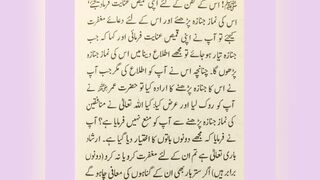 ﷺ! اس کے کفن کے لئے اپنی قمیص عنایت فرما دیجئے،
اس کی نماز جنازہ پڑھئے اور اس کے لئے دعائے مغفرت
کیجئے تو آپ نے اپنی قمیص عنایت فرمائی اور کہا کہ جب
جنازہ تیار ہو جائے تو مجھے اطلاع دینا میں اس کی نماز جنازہ
پڑھوں گا۔ چنانچہ اس نے آپ کو اطلاع دی مگر جب آپ
نے اس کا جنازہ پڑھنے کا ارادہ کیا تو حضرت عمرؓ نے
آپ کو روک لیا اور عرض کیا، کیا اللہ تعالیٰ نے منافقین
کی نماز جنازہ پڑھنے سے آپ کو منع نہیں فرمایا ہے؟ آپ
نے فرمایا کہ مجھے دونوں باتوں کا اختیار دیا گیا ہے۔ ارشاد
باری تعالیٰ ہے تم ان کے لئے مغفرت کرو یا نہ کرو (دونوں
برابر ہیں) اگر ستر بار بھی ان کے گناہوں کی معافی چاہو گے